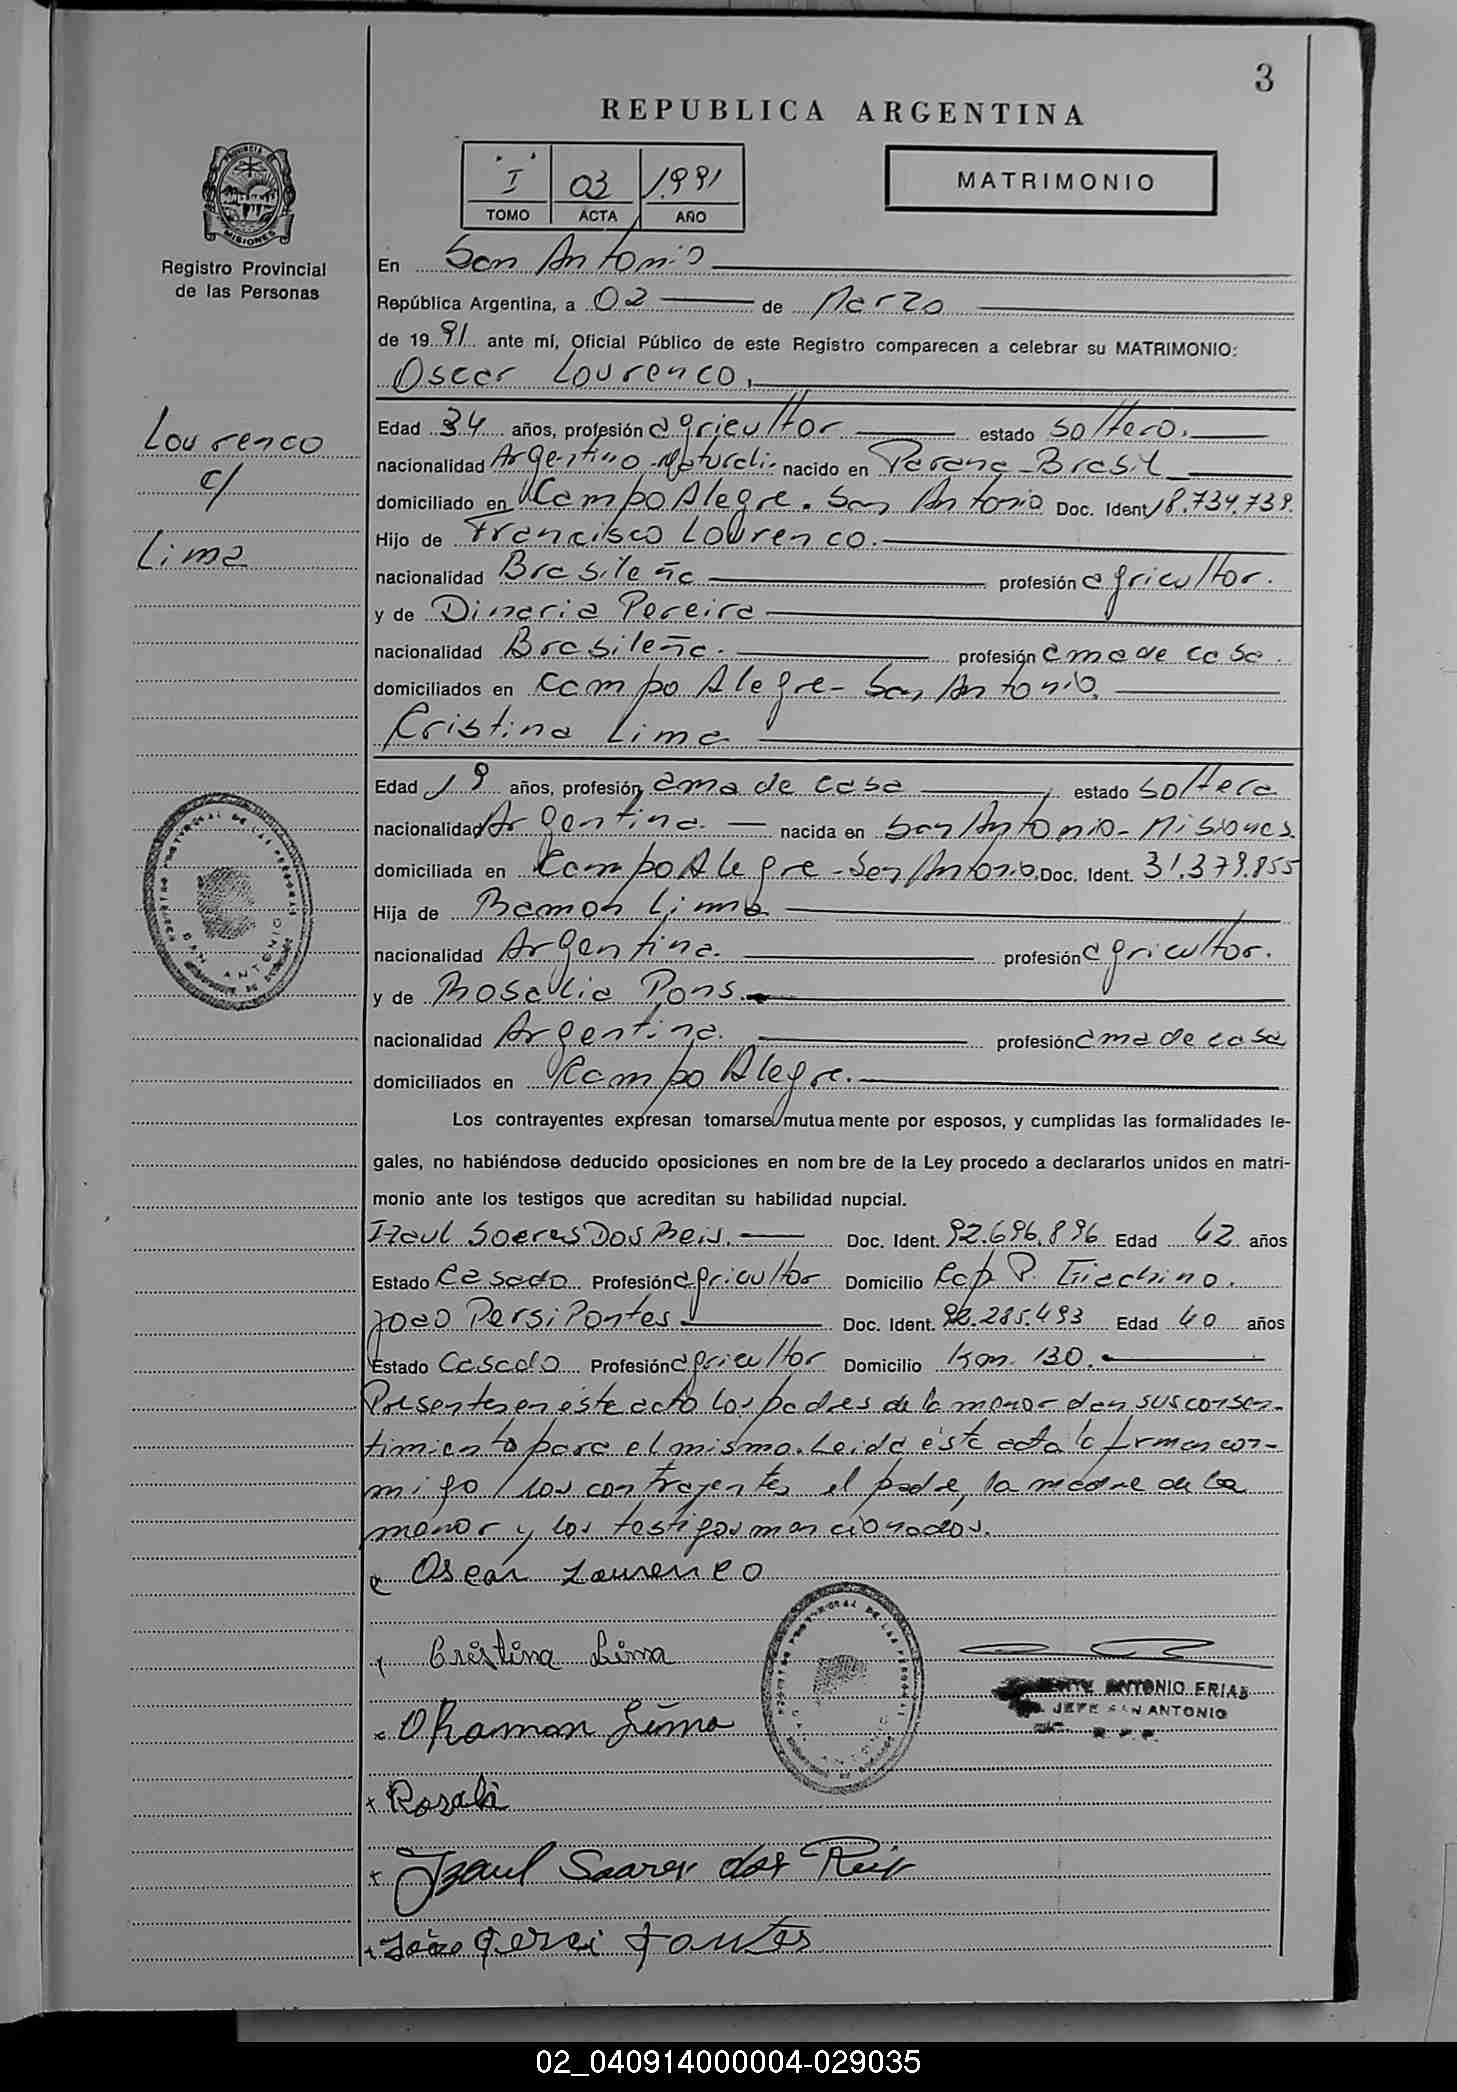 3
REPUBLICA ARGENTINA
I 03 1991
TOMO ACTA AÑO
MATRIMONIO
PROVINCIA DE
MISIONES
Registro Provincial
de las Personas
En San Antonio
República Argentina, a 02 de Marzo
de 1991 ante mí, Oficial Público de este Registro comparecen a celebrar su MATRIMONIO:
Oscar Lourenco,
Lourenco
c/
Lima
Edad 34 años, profesión agricultor estado soltero.
nacionalidad Argentino-naturali. nacido en Parana-Brasil
domiciliado en Campo Alegre. San Antonio Doc. Ident 18.734.739.
Hijo de Francisco Lourenco.
nacionalidad Brasileña profesión agricultor.
y de Dinaria Pereira
nacionalidad Brasileña. profesión ama de casa.
domiciliados en Campo Alegre- San Antonio.
Cristina Lima
Edad 19 años, profesión ama de casa estado soltera
nacionalidad Argentina. nacida en San Antonio-Misiones.
domiciliada en Campo Alegre-San Antonio. Doc. Ident. 31.379.855
Hija de Ramon Lima
nacionalidad Argentina. profesión agricultor.
y de Rosalia Pons.
nacionalidad Argentina. profesión ama de casa
domiciliados en Campo Alegre.
Los contrayentes expresan tomarse mutuamente por esposos, y cumplidas las formalidades le-
gales, no habiéndose deducido oposiciones en nombre de la Ley procedo a declararlos unidos en matri-
monio ante los testigos que acreditan su habilidad nupcial.
Izaul Soares Dos Reis. Doc. Ident. 92.696.896 Edad 42 años
Estado Casado Profesión agricultor Domicilio Cap P. Giachino.
Joao Persi Pontes Doc. Ident. 92.285.493 Edad 40 años
Estado Casado Profesión agricultor Domicilio Km. 130.
Presentes en éste acto los padres de la menor dan sus consen-
timiento para el mismo. Leida ésta acta la firman con-
migo los contrayentes el padre, la madre de la
menor y los testigos mencionados.
Oscar Lourenco
Cristina Lima
Ramon Lima
Rosali
Izaul Soares dos Reis
João Persi Pontes
REGISTRO PROVINCIAL DE LAS PERSONAS
SAN ANTONIO
ANTONIO FRIAS
JEFE SAN ANTONIO
02_040914000004-029035